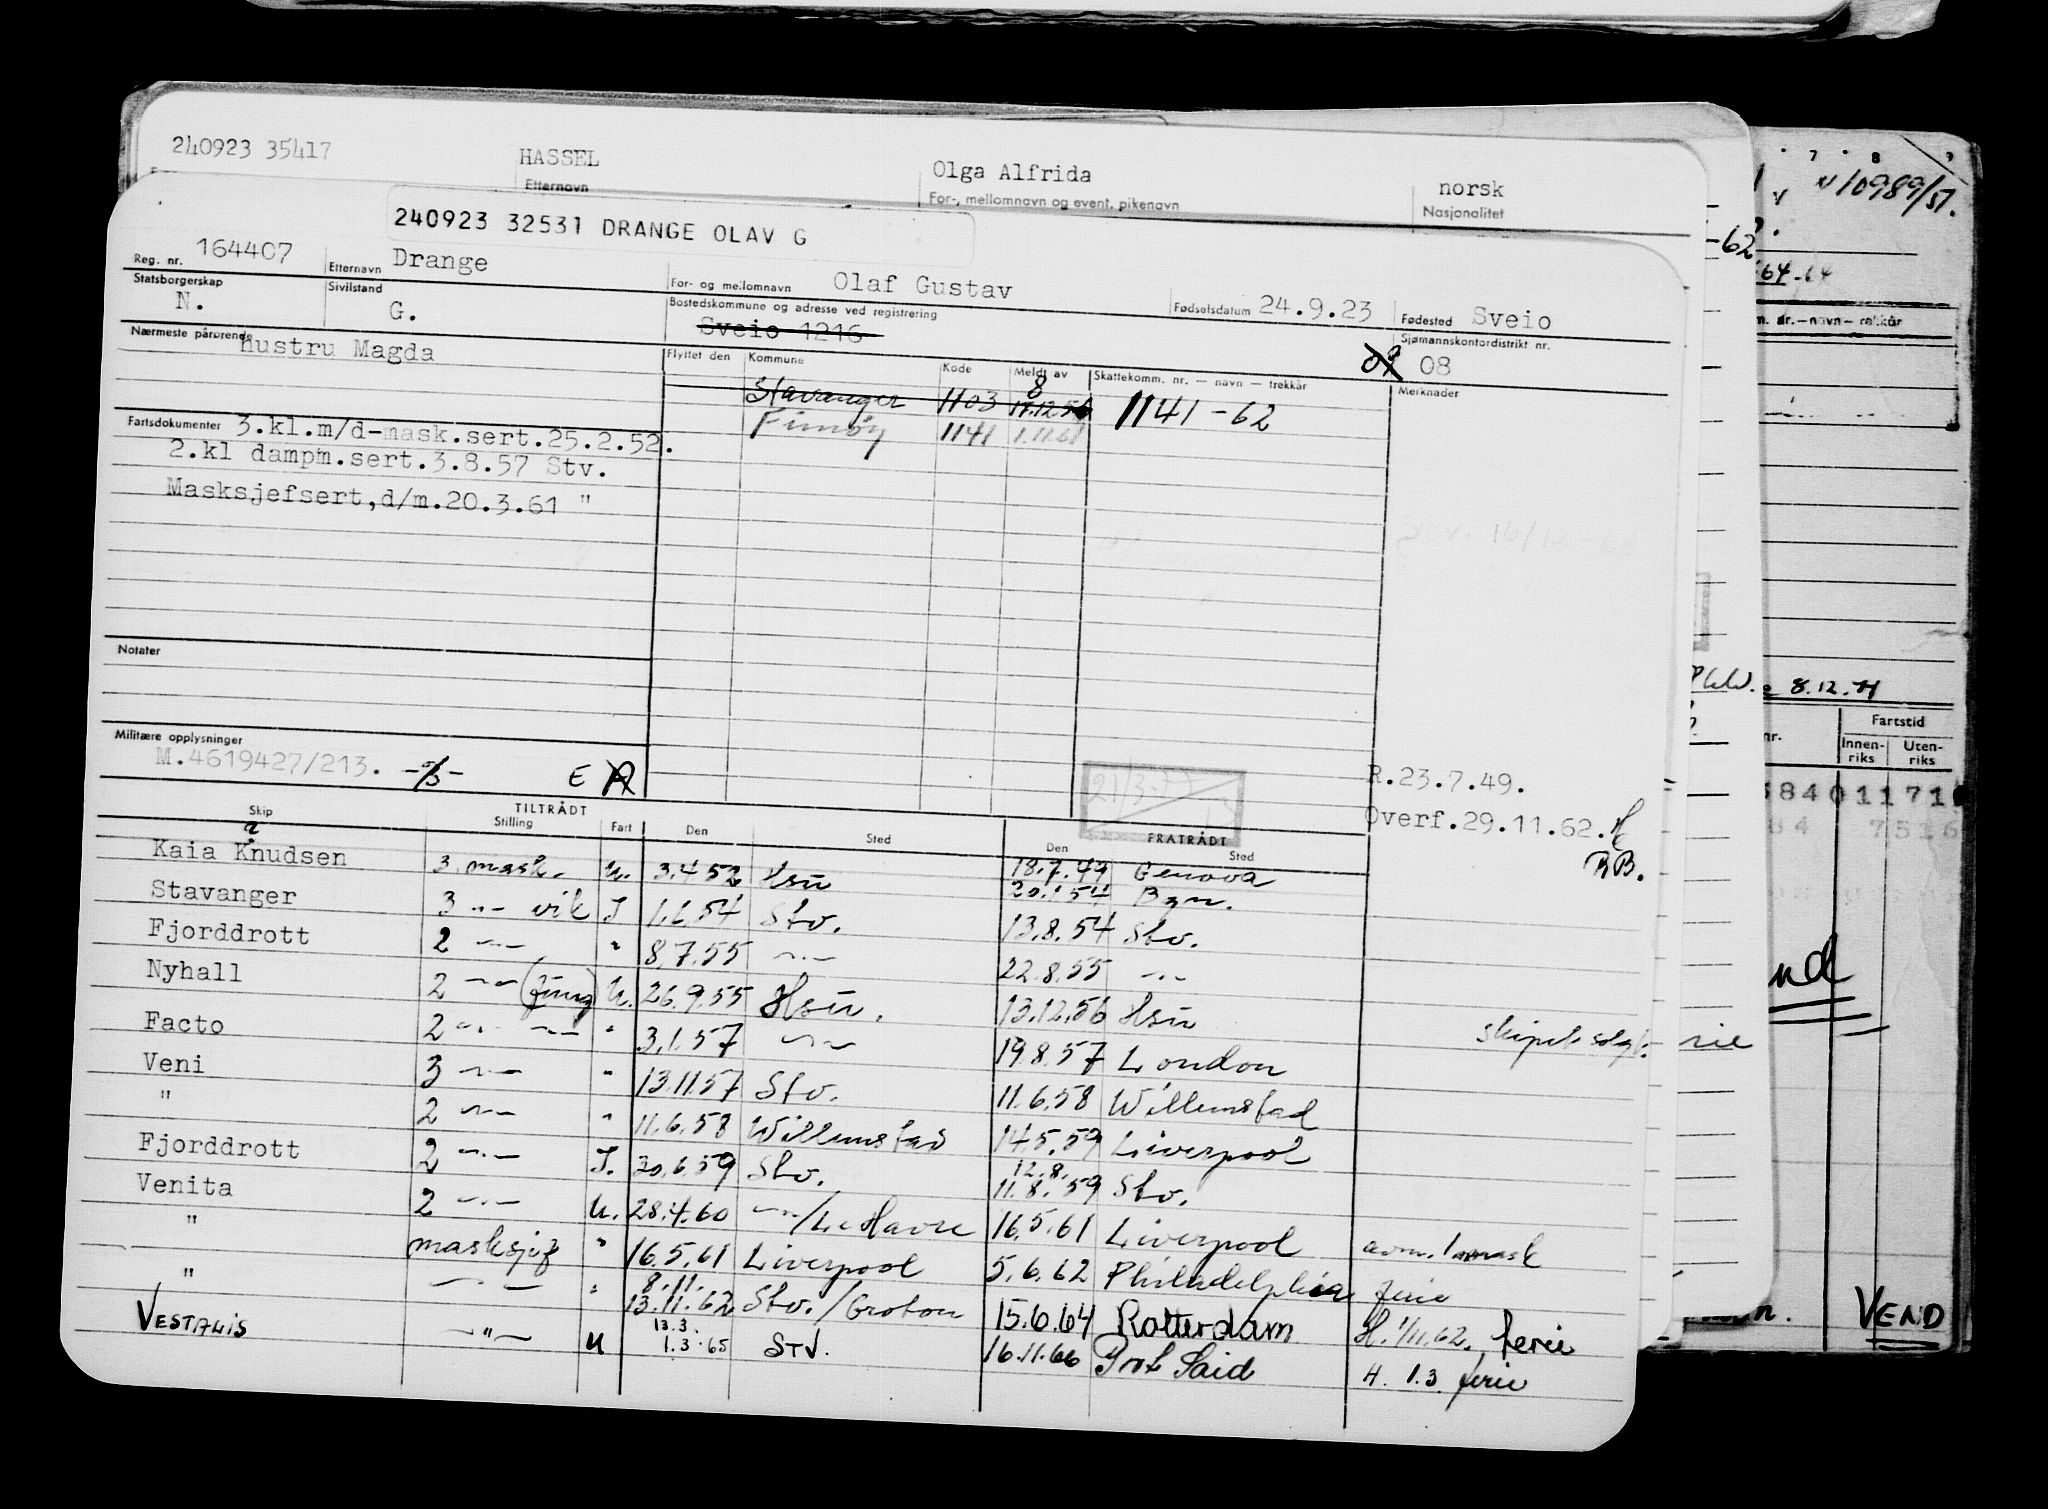 240923 35417 HASSEL Olga Alfrida norsk
Etternavn For-, mellomnavn og event. pikenavn Nasjonalitet
240923 32531 DRANGE OLAV G
Reg. nr. 164407 Etternavn Drange For- og mellomnavn Olaf Gustav Fødselsdatum 24.9.23 Fødested Sveio
Statsborgerskap N. Sivilstand G. Bostedskommune og adresse ved registrering Sveio 1216 Sjømannskontordistrikt nr. 08
Nærmeste pårørende hustru Magda
Flyttet den Kommune Kode Meldt av Skattekomm. nr. — navn — trekkår Merknader
Stavanger 1103 17.12.56 1141-62
Finnøy 1141 1.11.61
Fartsdokumenter 3.kl.m/d-mask.sert.25.2.52.
2.kl dampm.sert.3.8.57 Stv.
Masksjefsert,d/m.20.3.61 "
Notater
Militære opplysninger
M.4619427/213. E
21/3-77
R.23.7.49.
Overf.29.11.62. H
RB.
Skip TILTRÅDT Stilling Fart Den Sted FRATRÅDT Den Sted
18.7.49 Genova
Kaia Knudsen 3. mask. U. 3.4.52 Hsu 20.1.54 Bgn.
Stavanger 3 -"- vik I 1.6.54 Stv. 13.8.54 Stv.
Fjorddrott 2 -"- " 8.7.55 -"- 22.8.55 -"-
Nyhall 2 -"- (fung) U. 26.9.55 Hsu. 13.12.56 Hsu skipet solgt.
Facto 2 -"- -"- " 3.1.57 -"- 19.8.57 London
Veni 3 -"- " 13.11.57 Stv. 11.6.58 Willemstad
" 2 -"- " 11.6.58 Willemstad 14.5.59 Liverpool
Fjorddrott 2 -"- I. 30.6.59 Stv. 12.8. 11.8.59 Stv.
Venita 2 -"- U. 28.4.60 -"-/Le Havre 16.5.61 Liverpool avm. 1 mask
" masksjef " 16.5.61 Liverpool 5.6.62 Philadelphia ferie
" -"- " 8.11. 13.11.62 Stv./Groton 15.6.64 Rotterdam H. 1/11.62. ferie
VESTALIS -"- U 13.3. 1.3.65 STV. 16.11.66 Prot Said H. 1.3 ferie
7 8 9
10989/51.
-62
64-64
8.12.71
Fartstid
Innenriks Utenriks
VEND